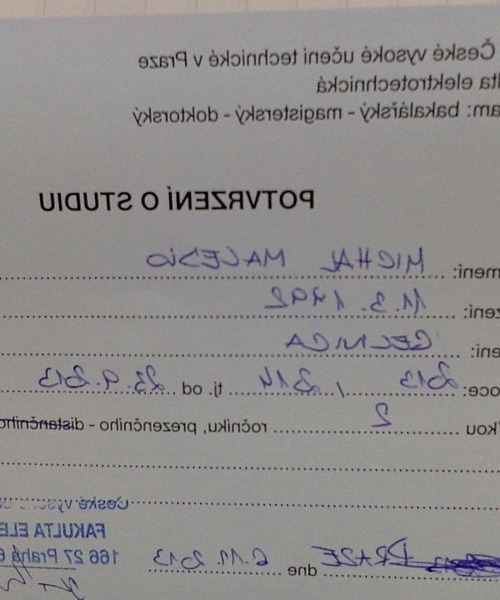 České vysoké učení technické v Praze
lta elektrotechnická
am: bakalářský - magisterský - doktorský
POTVRZENÍ O STUDIU
mení: MICHAL
zení: 11. 3. 1992
ení: GELNICA
oce: 2013 / 2014 tj. od 23. 9. 2013
kou 2 ročníku, prezenčního - distančního
České vyso
FAKULTA ELE
166 27 Praha 6
PRAZE dne 6.11.2013